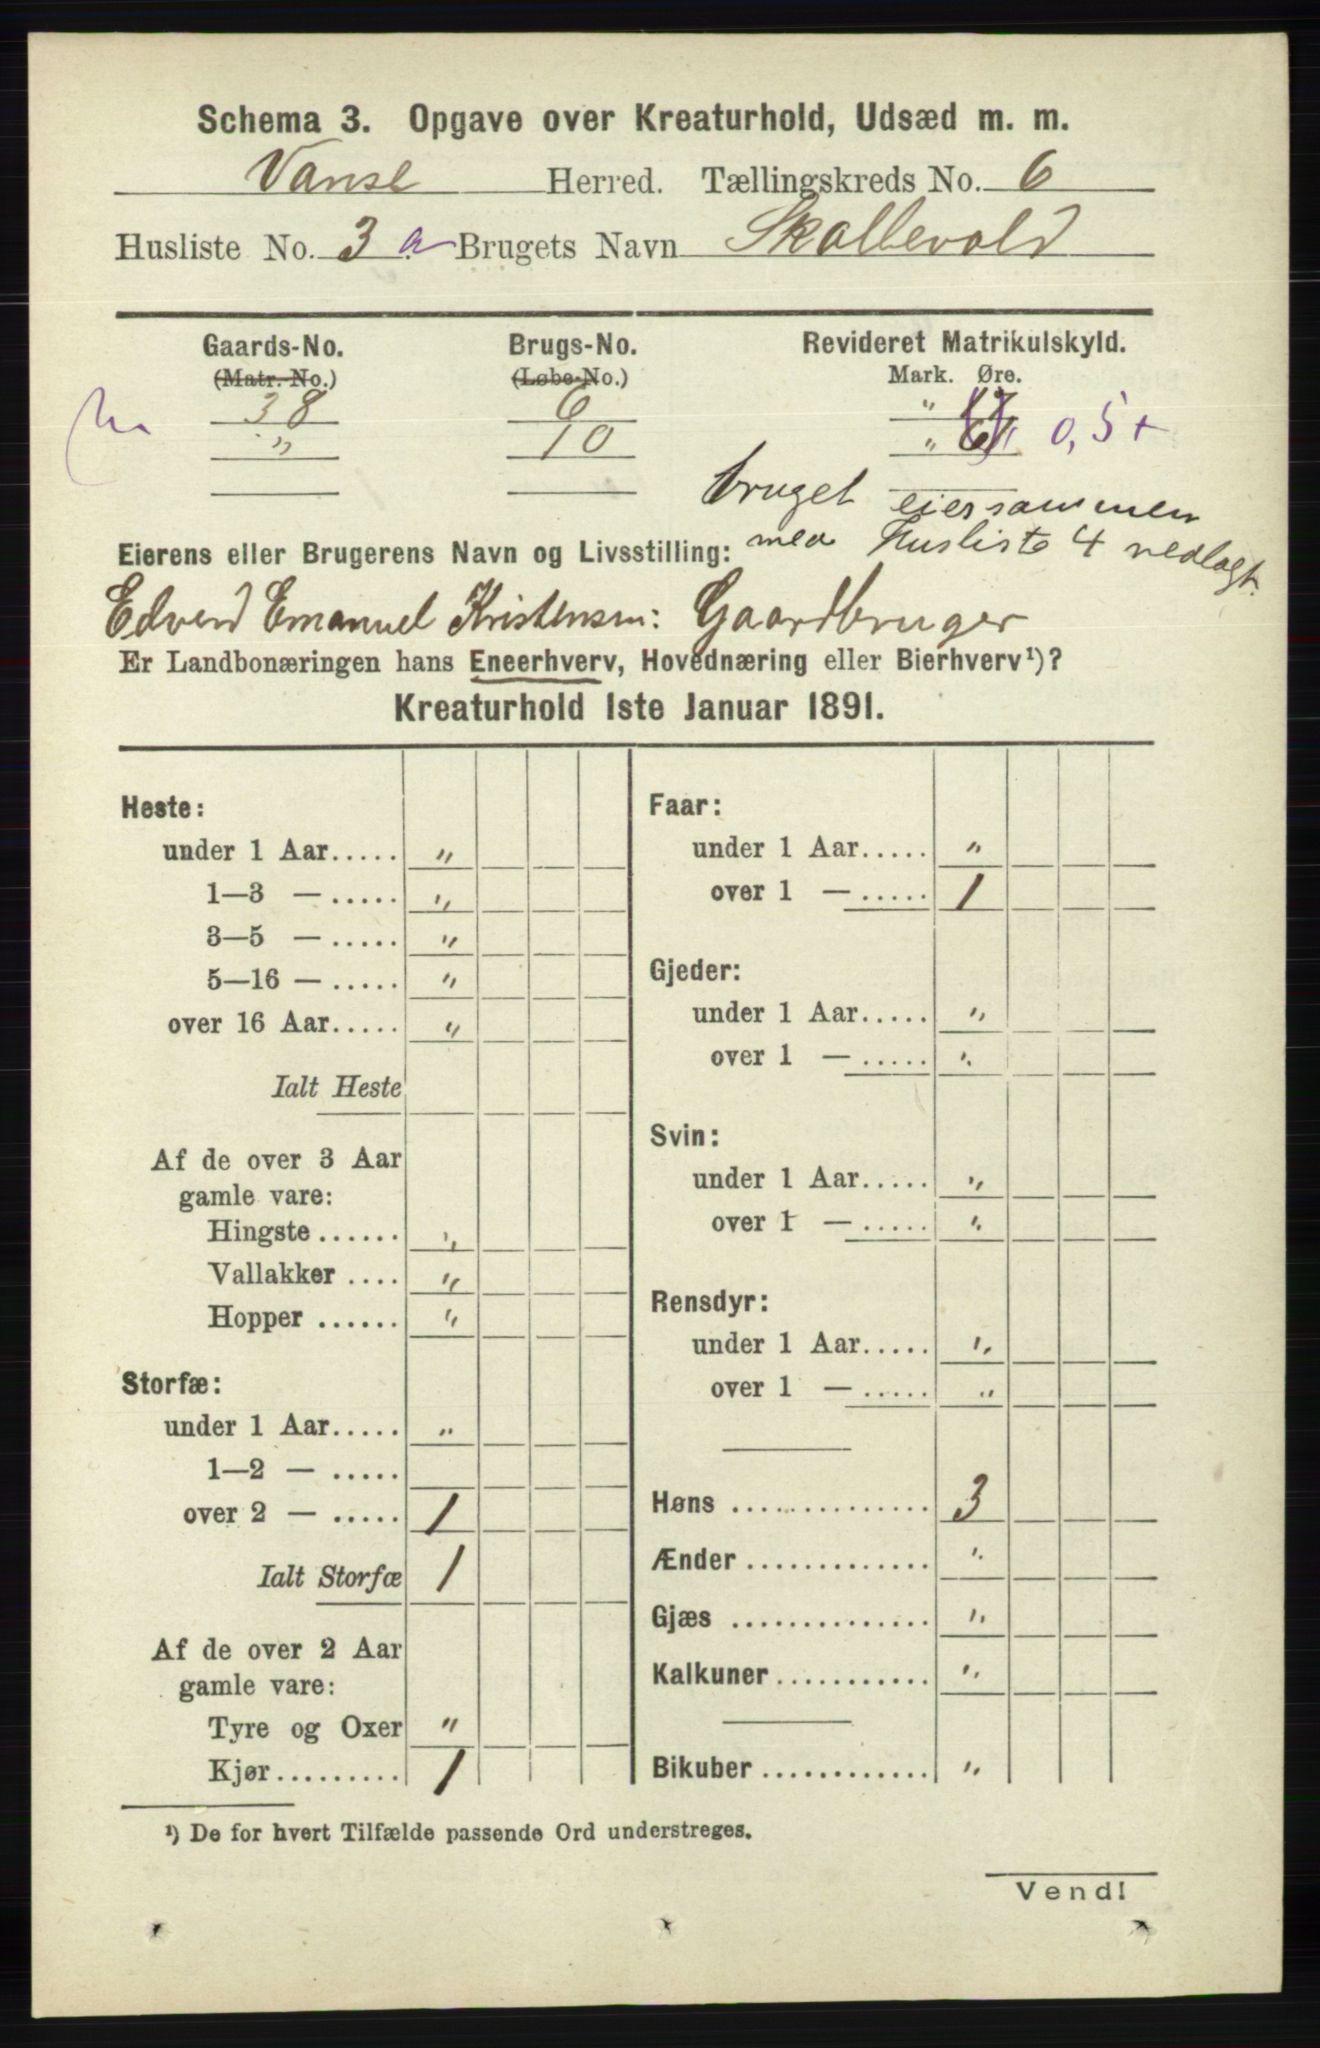 Schema 3. Opgave over Kreaturhold, Udsæd m. m.
Vanse Herred. Tællingskreds No. 6
Husliste No. 3 a Brugets Navn Skollevold
Gaards-No. Brugs-No. Revideret Matrikulskyld.
(Matr.-No.) (Løbe-No.) Mark. Øre.
38 6 "
" 10 " 0,5+
bruget eies sammen
Eierens eller Brugerens Navn og Livsstilling: med Husliste 4 vedlagt.
Edverd Emanuel Kristensen: Gaardbruger
Er Landbonæringen hans Eneerhverv, Hovednæring eller Bierhverv¹)?
Kreaturhold 1ste Januar 1891.
Heste:
under 1 Aar..... "
1—3 — ..... "
3—5 — ..... "
5—16 — ..... "
over 16 Aar..... "
Ialt Heste
Af de over 3 Aar
gamle vare:
Hingste ...... "
Vallakker .... "
Hopper ...... "
Storfæ:
under 1 Aar..... "
1—2 — .....
over 2 — ..... 1
Ialt Storfæ 1
Af de over 2 Aar
gamle vare:
Tyre og Oxer "
Kjør......... 1
Faar:
under 1 Aar..... "
over 1 — ..... 1
Gjeder:
under 1 Aar..... "
over 1 — ..... "
Svin:
under 1 Aar..... "
over 1 — ..... "
Rensdyr:
under 1 Aar..... "
over 1 — ..... "
Høns .............. 3
Ænder ............. "
Gjæs .............. "
Kalkuner ........... "
Bikuber ............ "
¹) De for hvert Tilfælde passende Ord understreges.
Vend!